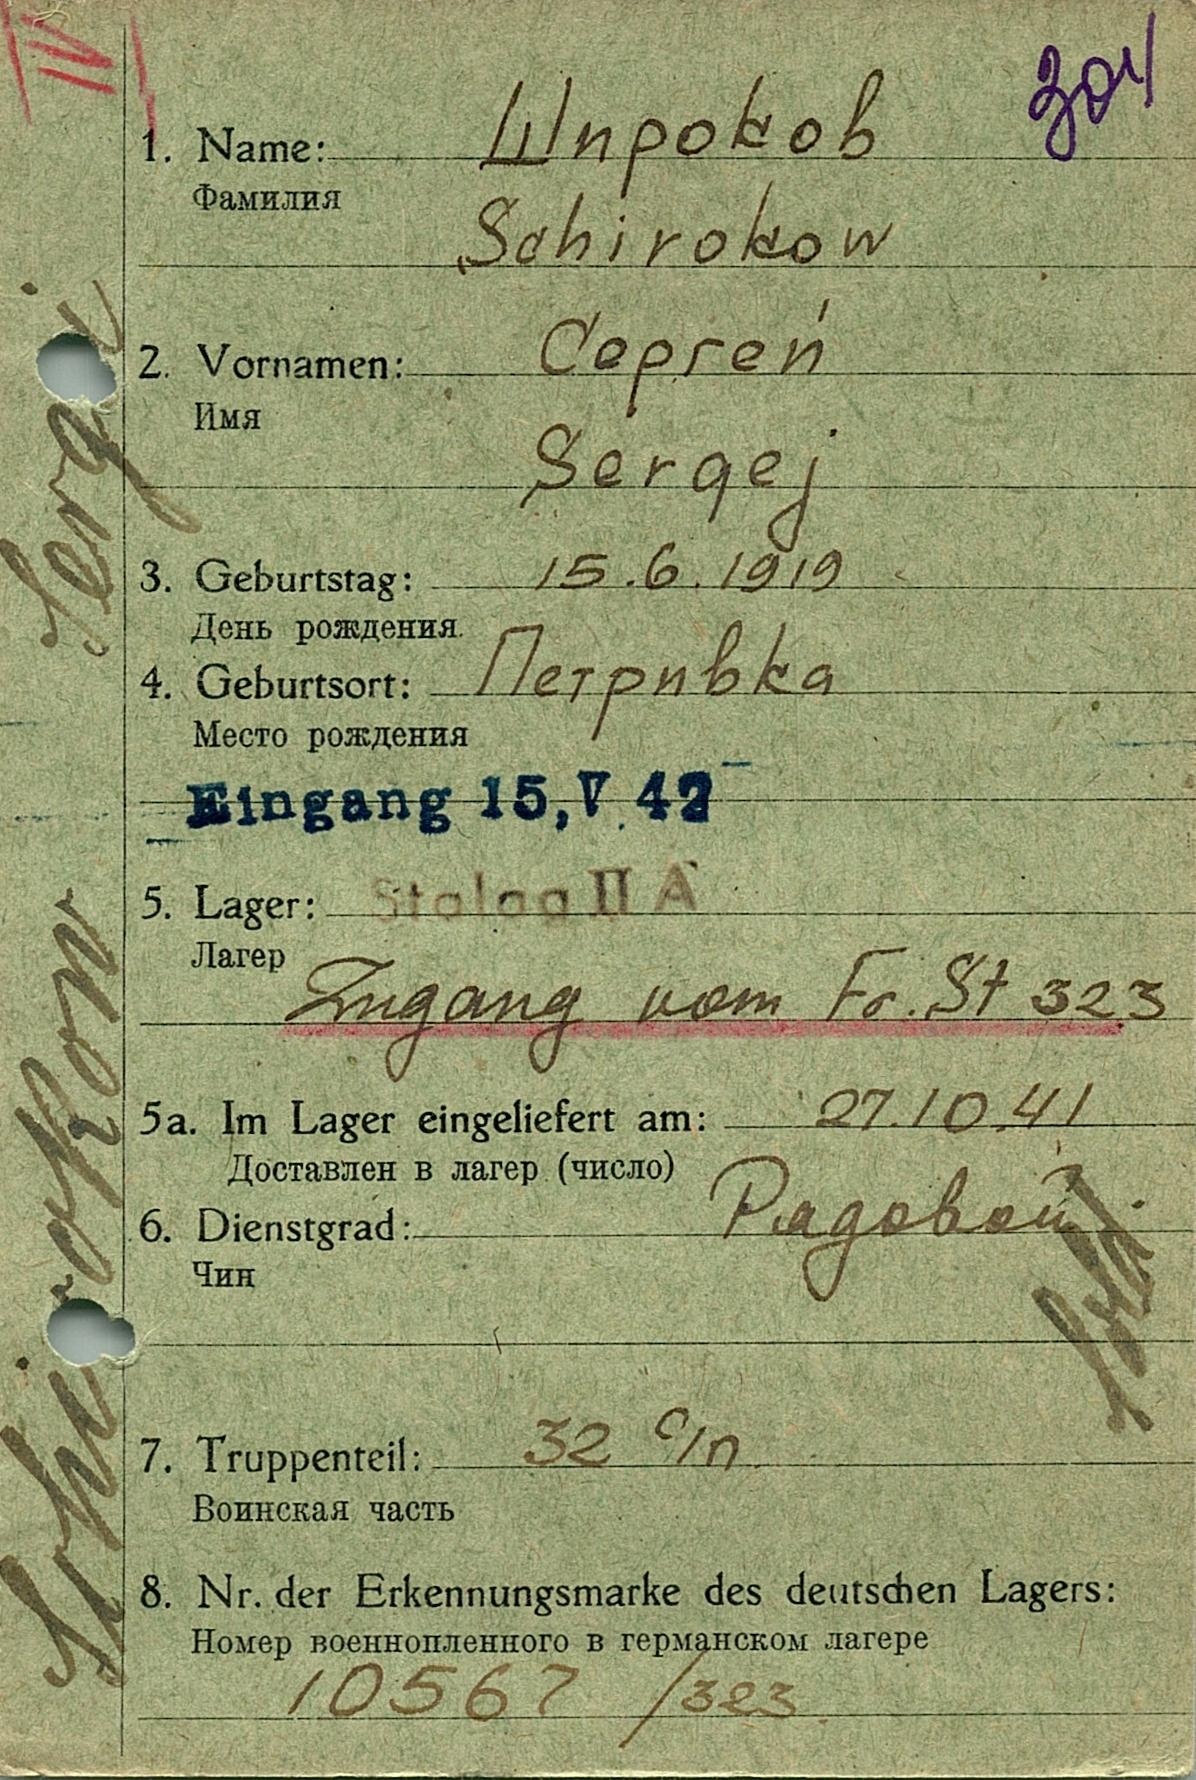 IV
304
1. Name: Широков
Фамилия
Schirokow
2. Vornamen: Сергей
Имя
Sergej
3. Geburtstag: 15.6.1919
День рождения
4. Geburtsort: Петривка
Место рождения
Eingang 15, V. 42
5. Lager: Stalag II A
Лагер
Zugang vom Fr. St 323
5a. Im Lager eingeliefert am: 27.10.41
Доставлен в лагер (число)
6. Dienstgrad: Рядовой
Чин
Sold.
7. Truppenteil: 32 с/п.
Воинская часть
8. Nr. der Erkennungsmarke des deutschen Lagers:
Номер военнопленного в германском лагере
10567 /323
Schirokow Sergei